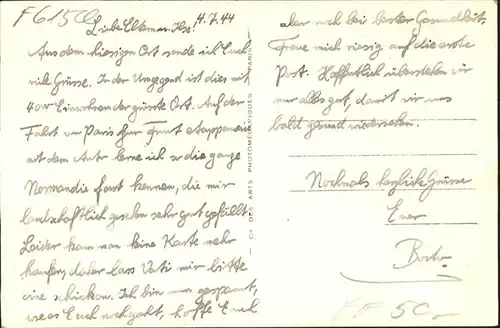 F615Cc
4.7.44
Liebe Eltern u. Ilse!
Aus dem hiesigen Ort sende ich Euch
viele Grüsse. In der Umgegend ist dies mit
400 Einwohnern der grösste Ort. Auf der
Fahrt von Paris zur Front etappenweise
mit dem Auto lerne ich so die ganze
Normandie fast kennen, die mir
landschaftlich gesehen sehr gut gefällt.
Leider kann man keine Karte mehr
kaufen, daher lass Vati mir bitte
eine schicken. Ich bin nun gespannt,
wie es Euch wohl geht, hoffe Euch
Cie DES ARTS PHOTOMÉCANIQUES
PARIS
aber noch bei bester Gesundheit.
Freue mich riesig auf die erste
Post. Hoffentlich überstehen wir
nur alles gut, damit wir uns
bald gesund wiedersehen.
Nochmals herzliche Grüsse
Euer
FF 50,-